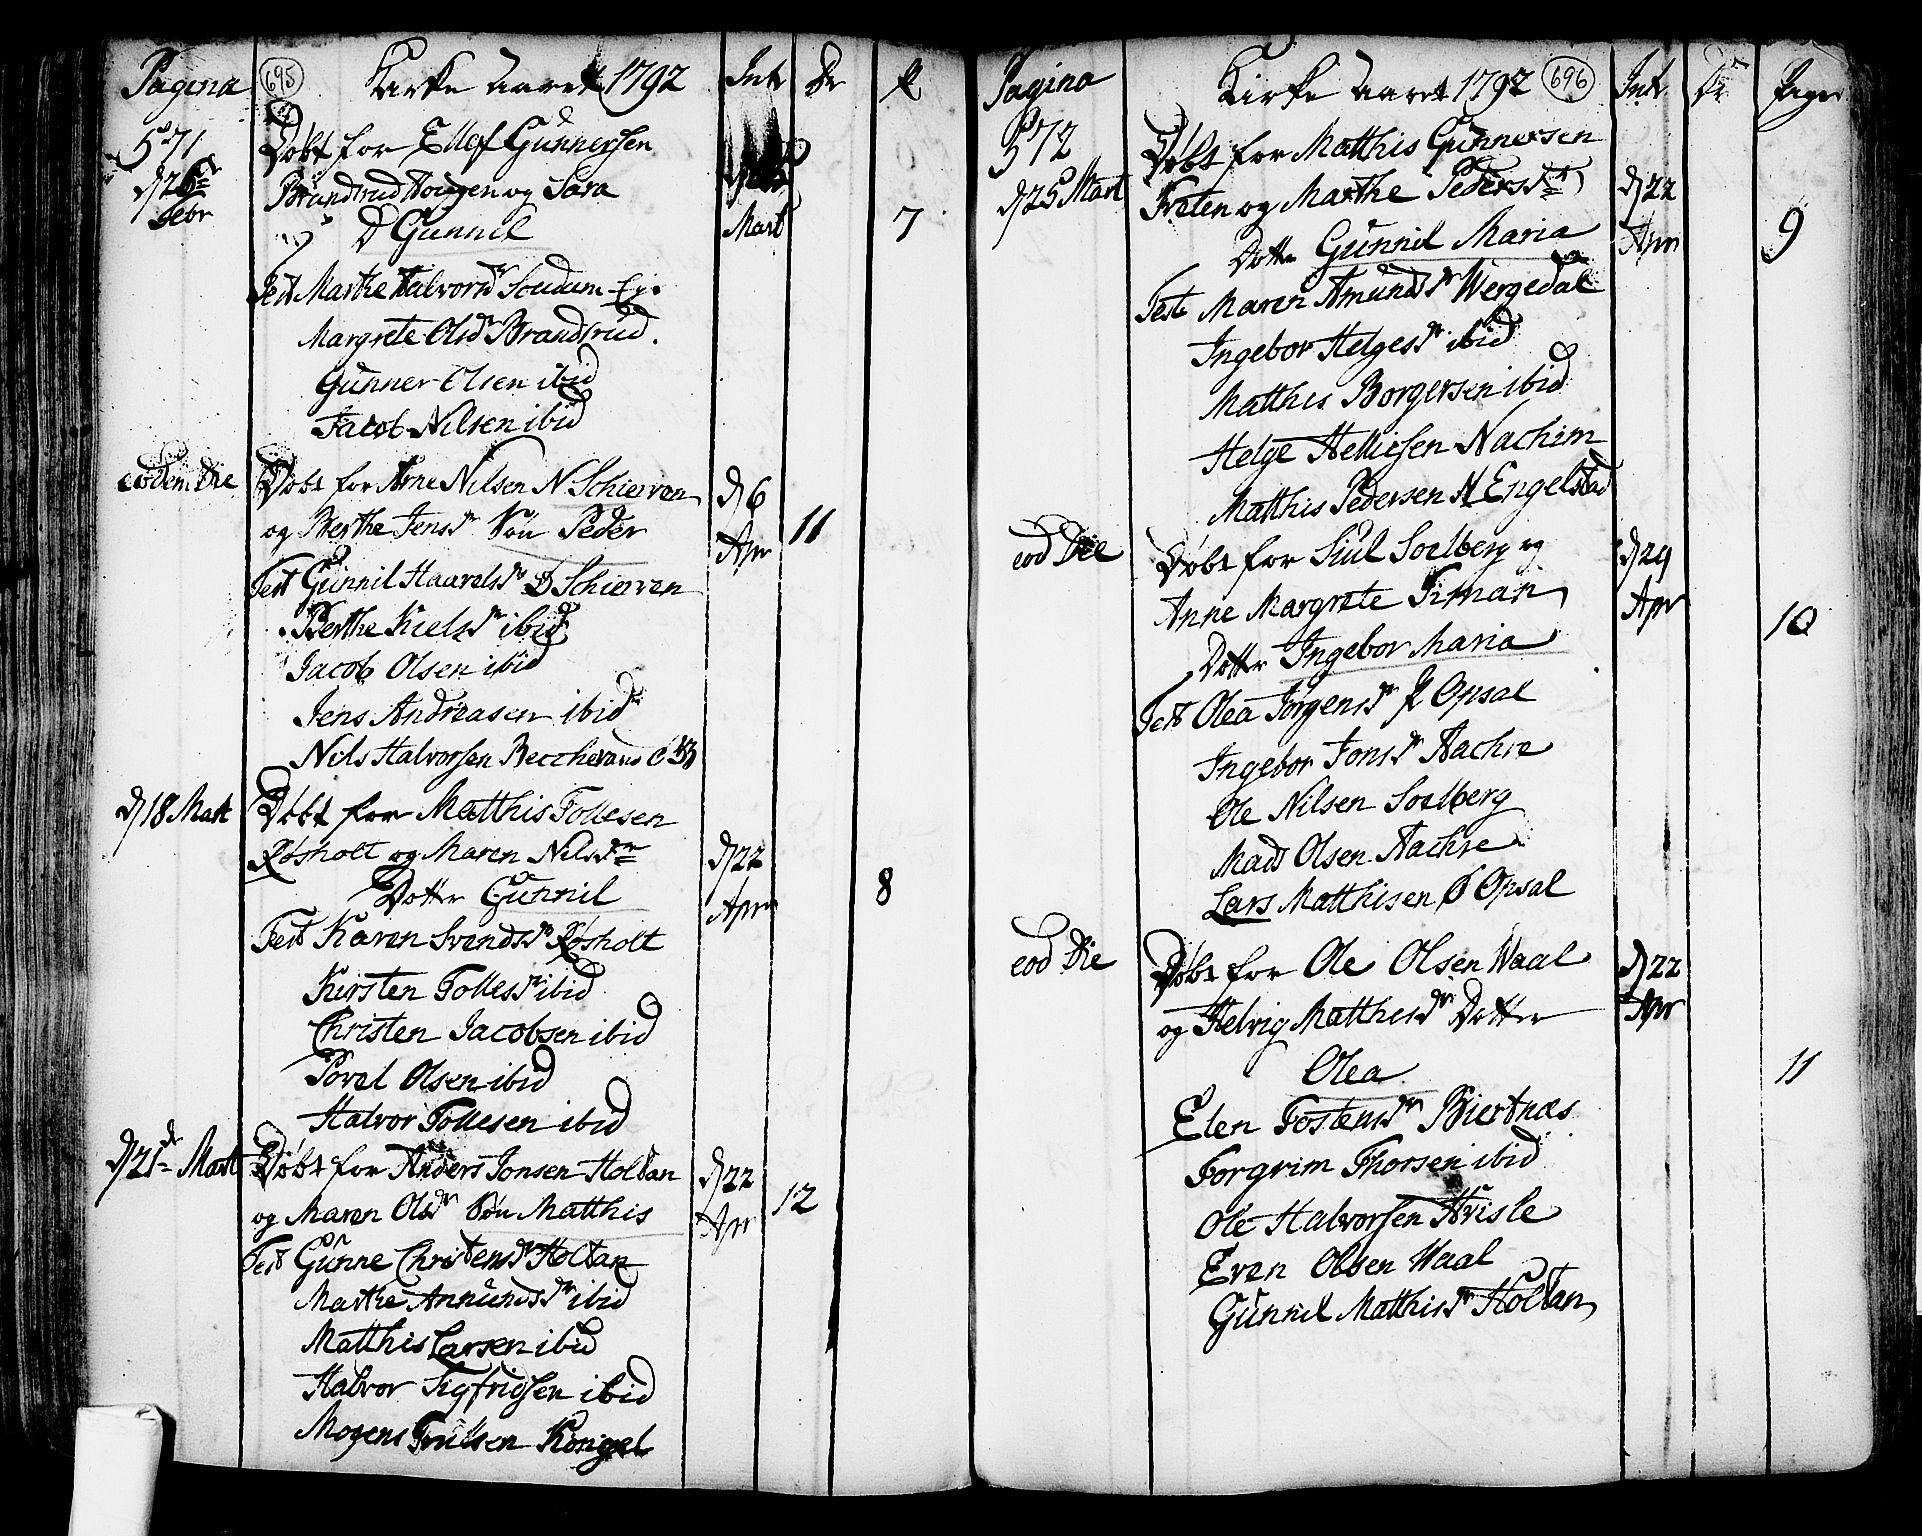 Pagina 695 Kirke Aaret 1792 Int Dr P
571 Døbt for Ellef Gunnersen
d 26de Brandrud Hougen og Sara
Febr D Gunnil Mart 7
Test Marthe Halvorsdr Soudum Eje
Margrete Olsdr Brandsrud.
Gunner Olsen ibid
Jacob Nilsen ibid
eodem Die Døbt for Arne Nilsen N. Schierven d 6
og Berthe Jensdr Søn Peder Apr 11
Test Gunnil Haavelsdr Ø Schierven
Berthe Kielsdr ibid
Jacob Olsen ibid
Jens Andreasen ibid
Nils Halvorsen
d 18 Mart Døbt for Matthis Tollesen
Røsholt og Maren Nilsdr d 22
Dotter Gunnil Apr 8
Test Karen Svendsdr Røsholt
Kirsten Tollesdr ibid
Christen Jacobsen ibid
Povel Olsen ibid
Halvor Tollesen ibid
d 21de Mart Døbt for Anders Jonsen Holtan d 22
og Maren Olsdr Søn Matthis Apr 12
Test Gunne Christensdr Holtan
Marthe Annundsdr ibid
Matthis Larsen ibid
Halvor Sigfridsen ibid
Mogens Trulsen Kongel
Pagina Kirke Aaret 1792 696 Int Dr Piger
572 Døbt for Matthis Gunnersen
d 25 Mart Fraten og Marthe Pedersdr d 22
Dotter Gunnil Maria Apr 9
Test Maren Amundsdr Wergedal
Ingebor Helgesdr ibid
Matthis Borgersen ibid
Helge Hellicsen Nachim
Matthis Pedersen N Engelstad
eod Die Døbt for Siul Soelberg og d 29
Anne Margrete Timan Apr 10
Dotter Ingebor Maria
Test Olea Jørgensdr Ø Opsal
Ingebor Jonsdr Aachre
Ole Nilsen Soelberg
Mads Olsen Aachre
Lars Matthisen Ø Opsal
eod Die Døbt for Ole Olsen Waal d 22
og Helvig Matthisdr Dotter Apr
Olea 11
Elen Tostensdr Biertnæs
Torgrim Thorsen ibid
Ole Halvorsen Hvisle
Even Olsen Waal
Gunnil Matthisdr Holtan